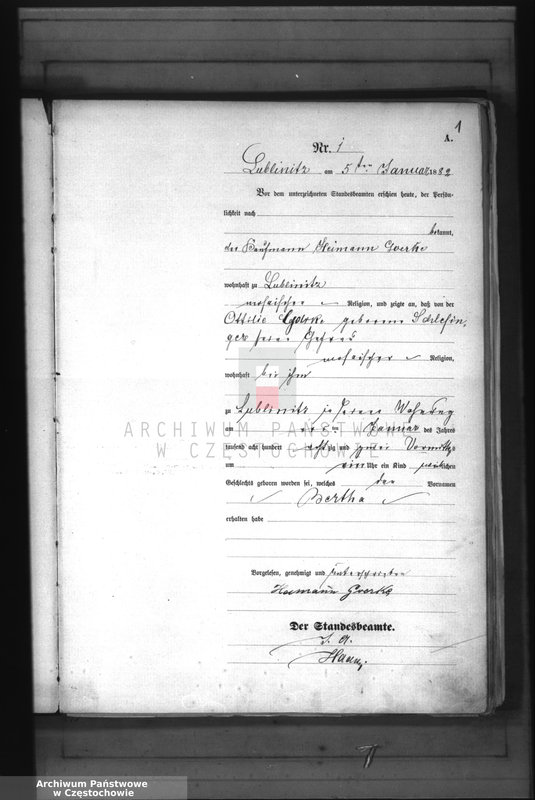 1
A.
Nr. 1
Lublinitz am 5ten Januar 1882
Vor dem unterzeichneten Standesbeamten erschien heute, der Persön-
lichkeit nach
bekannt,
der Kaufmann Heimann Goerke
wohnhaft zu Lublinitz
mosaischer Religion, und zeigte an, daß von der
Ottilie Goerke geborene Schlesin-
ger seiner Ehefrau
mosaischer Religion,
wohnhaft bei ihm
zu Lublinitz in seiner Wohnung
am Januar des Jahres
ARCHIWUM PAŃSTWOWE
W CZĘSTOCHOWIE
tausend acht hundert achtzig und zwei Vormittags
um Uhr ein Kind weiblichen
Geschlechts geboren worden sei, welches den Vornamen
Bertha
erhalten habe
Vorgelesen, genehmigt und unterschrieben
Heimann Goerke
Der Standesbeamte.
Archiwum Państwowe
w Częstochowie